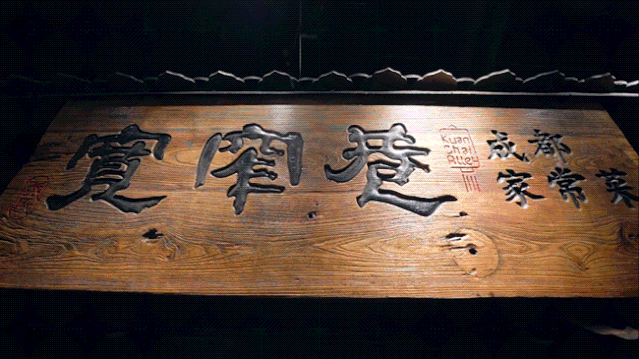 寬窄巷
Kuan
Zhai
Alley
成都
家常菜